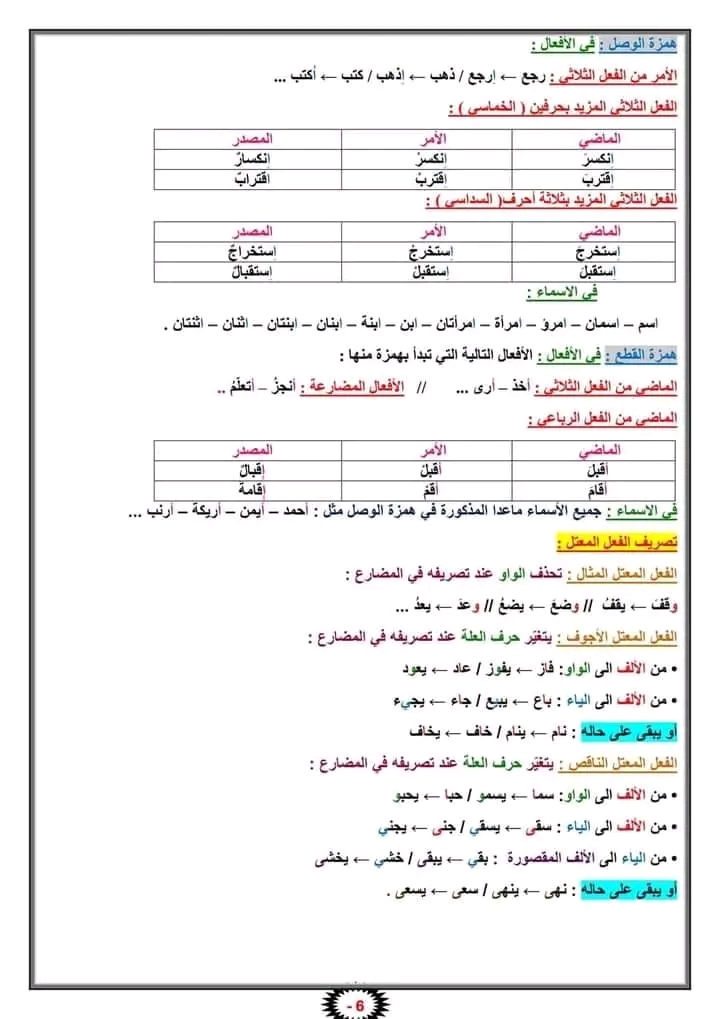 همزة الوصل : في الأفعال :
الأمر من الفعل الثلاثي : رجع ← إرجع / ذهب ← إذهب / كتب ← أكتب ...
الفعل الثلاثي المزيد بحرفين ( الخماسي ) :
الماضي الأمر المصدر
إنكسرَ إنكسرْ إنكسارٌ
إقتربَ إقتربْ اقترابٌ
الفعل الثلاثي المزيد بثلاثة أحرف( السداسي ) :
الماضي الأمر المصدر
إستخرجَ إستخرجْ إستخراجٌ
إستقبلَ إستقبلْ إستقبالٌ
في الاسماء :
اسم – اسمان – امرؤ – امرأة – امرأتان – ابن – ابنة – ابنان – ابنتان – اثنان – اثنتان .
همزة القطع : في الأفعال : الأفعال التالية التي تبدأ بهمزة منها :
الماضي من الفعل الثلاثي : أخذ – أرى ... // الأفعال المضارعة : أنجزُ – أتعلّمُ ..
الماضي من الفعل الرباعي :
الماضي الأمر المصدر
أقبلَ أقبلْ إقبالٌ
أقامَ أقمْ إقامة
في الاسماء : جميع الأسماء ماعدا المذكورة في همزة الوصل مثل : أحمد – أيمن – أريكة – أرنب ...
تصريف الفعل المعتل :
الفعل المعتل المثال : تحذف الواو عند تصريفه في المضارع :
وقفَ ← يقفُ // وضعَ ← يضعُ // وعدَ ← يعدُ ...
الفعل المعتل الأجوف : يتغيّر حرف العلة عند تصريفه في المضارع :
• من الألف الى الواو: فاز ← يفوز / عاد ← يعود
• من الألف الى الياء : باع ← يبيع / جاء ← يجيء
أو يبقى على حاله : نام ← ينام / خاف ← يخاف
الفعل المعتل الناقص : يتغيّر حرف العلة عند تصريفه في المضارع :
• من الألف الى الواو: سما ← يسمو / حبا ← يحبو
• من الألف الى الياء : سقى ← يسقي / جنى ← يجني
• من الياء الى الألف المقصورة : بقي ← يبقى / خشي ← يخشى
أو يبقى على حاله : نهى ← ينهى / سعى ← يسعى .
6 -